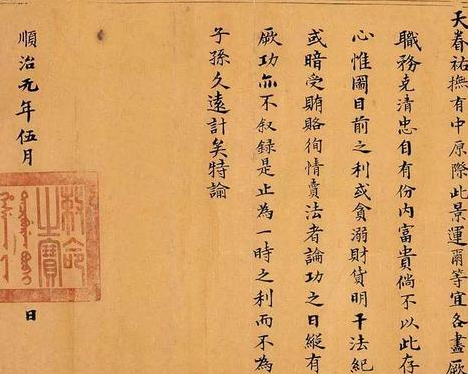 天眷祐撫有中原際此景運爾等宜各盡厥
職務克清忠自有份內富貴倘不以此存
心惟圖目前之利或貪溺財貨明干法紀
或暗受賄賂徇情賣法者論功之日縱有
厥功亦不叙録是止為一時之利而不為
子孫久遠計矣特諭
順治元年伍月
日
制命之寶